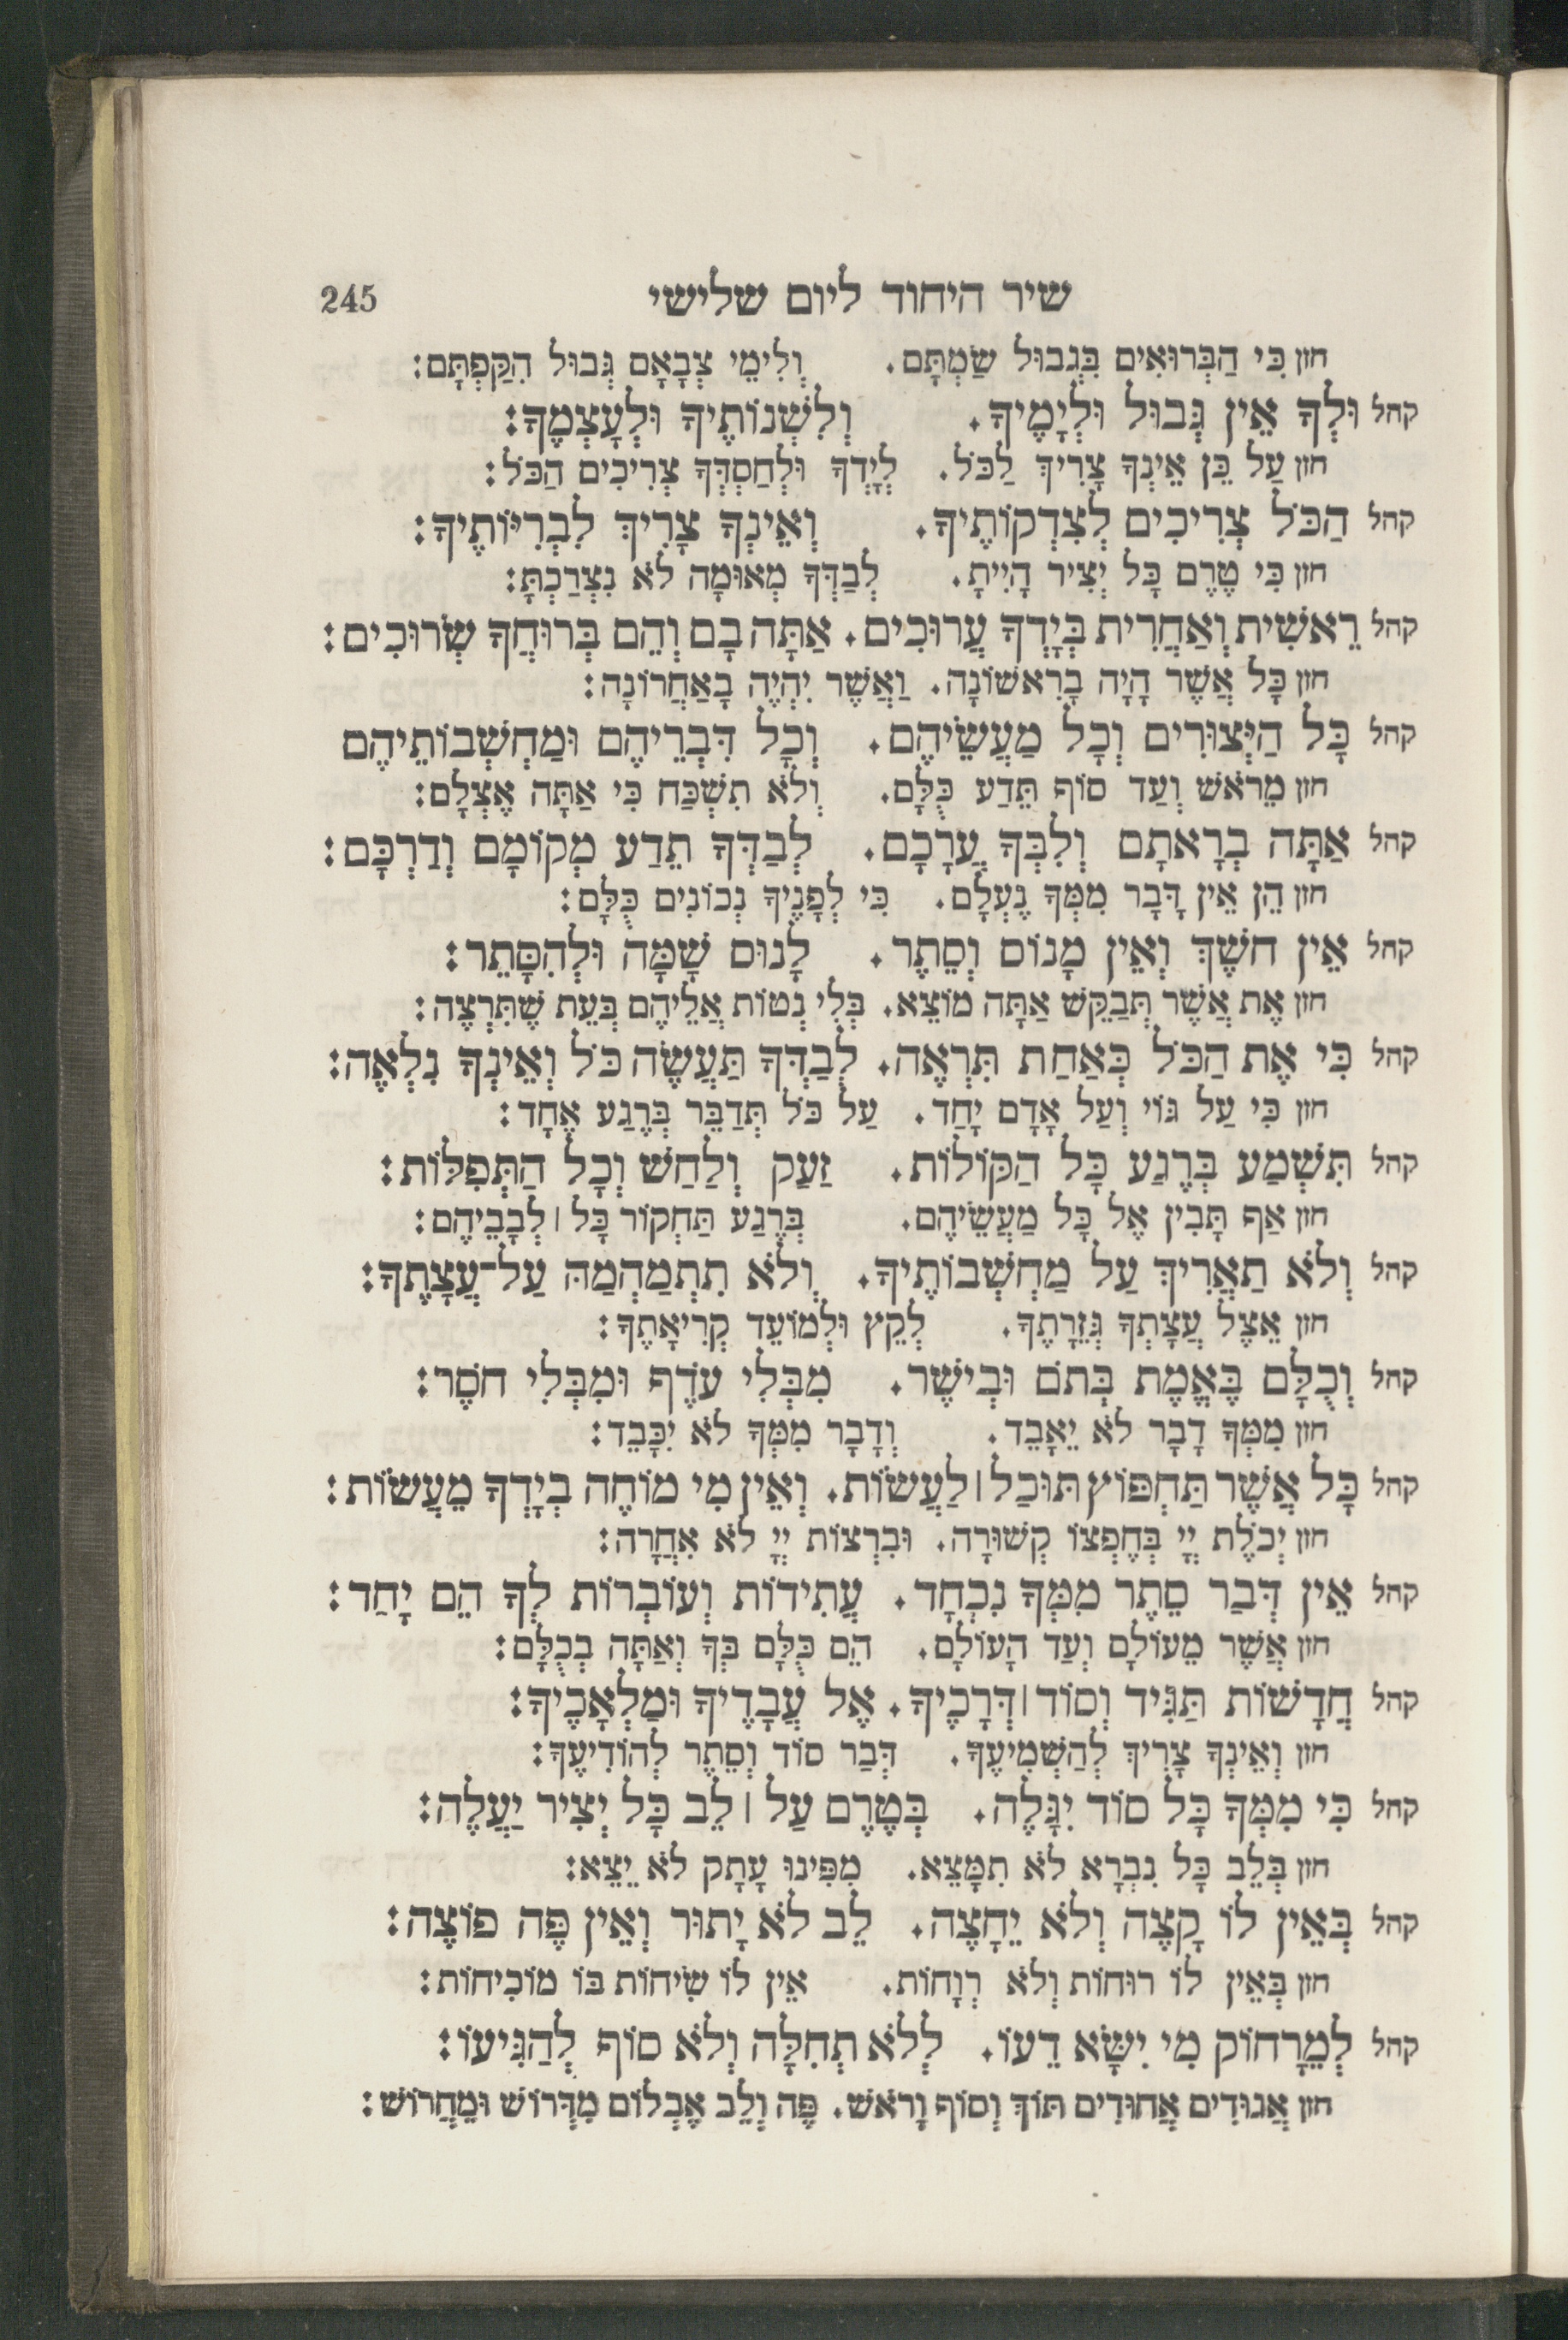 שיר היחוד ליום שלישי 245
חזן כִּי הַבְּרוּאִים בִּגְבוּל שַׂמְתָּם. וְלִימֵי צְבָאָם גְּבוּל הִקַּפְתָּם:
קהל וּלְךָ אֵין גְּבוּל וּלְיָמֶיךָ. וְלִשְׁנוֹתֶיךָ וּלְעָצְמֶךָ:
חזן עַל כֵּן אֵינְךָ צָרִיךְ לַכֹּל. לְיָדְךָ וּלְחַסְדְּךָ צְרִיכִים הַכֹּל:
קהל הַכֹּל צְרִיכִים לְצִדְקוֹתֶיךָ. וְאֵינְךָ צָרִיךְ לִבְרִיּוֹתֶיךָ:
חזן כִּי טֶרֶם כָּל יְצִיר הָיִיתָ. לְבַדְּךָ מְאוּמָה לֹא נִצְרַכְתָּ:
קהל רֵאשִׁית וְאַחֲרִית בְּיָדְךָ עֲרוּכִים. אַתָּה בָם וְהֵם בְּרוּחֲךָ שְׂרוּכִים:
חזן כָּל אֲשֶׁר הָיָה בָרִאשׁוֹנָה. וַאֲשֶׁר יִהְיֶה בָאַחֲרוֹנָה:
קהל כָּל הַיְּצוּרִים וְכָל מַעֲשֵׂיהֶם. וְכָל דִּבְרֵיהֶם וּמַחְשְׁבוֹתֵיהֶם
חזן מֵרֹאשׁ וְעַד סוֹף תֵּדַע כֻּלָּם. וְלֹא תִשְׁכַּח כִּי אַתָּה אֶצְלָם:
קהל אַתָּה בְרָאתָם וְלִבְּךָ עֲרָכָם. לְבַדְּךָ תֵדַע מְקוֹמָם וְדַרְכָּם:
חזן הֵן אֵין דָּבָר מִמְּךָ נֶעְלָם. כִּי לְפָנֶיךָ נְכוֹנִים כֻּלָּם:
קהל אֵין חשֶׁךְ וְאֵין מָנוֹם וְסֵתֶר. לָנוּם שָׁמָּה וּלְהִסָּתֵר:
חזן אֶת אֲשֶׁר תְּבַקֵּשׁ אַתָּה מוֹצֵא. בְּלִי נְטוֹת אֲלֵיהֶם בְּעֵת שֶׁתִּרְצֶה:
קהל כִּי אֶת הַכֹּל כְּאַחַת תִּרְאֶה. לְבַדְּךָ תַּעֲשֶׂה כֹּל וְאֵינְךָ נִלְאֶה:
חזן כִּי עַל גּוֹי וְעַל אָדָם יָחַד. עַל כֹּל תְּדַבֵּר בְּרֶגַע אֶחָד:
קהל תִּשְׁמַע בְּרֶגַע כָּל הַקּוֹלוֹת. זַעַק וְלַחַשׁ וְכָל הַתְּפִלּוֹת:
חזן אַף תָּבִין אֶל כָּל מַעֲשֵׂיהֶם. בְּרֶגַע תַּחְקוֹר כָּל ׀ לְבָבֵיהֶם:
קהל וְלֹא תַאֲרִיךְ עַל מַחְשְׁבוֹתֶיךָ. וְלֹא תִתְמַהְמַהּ עַל־עֲצָתֶךָ:
חזן אֵצֶל עֲצָתְךָ גְּזֵרָתֶךָ. לְקֵץ וּלְמוֹעֵד קְרִיאָתֶךָ:
קהל וְכֻלָּם בֶּאֱמֶת בְּתֹם וּבְישֶׁר. מִבְּלִי עֹדֶף וּמִבְּלִי חֹסֶר:
חזן מִמְּךָ דָבָר לֹא יֵאָבֵד. וְדָבָר מִמְּךָ לֹא יִכָּבֵד:
קהל כָּל אֲשֶׁר תַּחְפּוֹץ תּוּכַל ׀ לַעֲשׂוֹת. וְאֵין מִי מוֹחֶה בְיָדְךָ מֵעֲשׂוֹת:
חזן יְכֹלֶת יְיָ בְּחֶפְצוֹ קְשׁוּרָה. וּבִרְצוֹת יְיָ לֹא אִחֲרָה:
קהל אֵין דְּבַר סֵתֶר מִמְּךָ נִכְחָד. עֲתִידוֹת וְעוֹבְרוֹת לְךָ הֵם יָחַד:
חזן אֲשֶׁר מֵעוֹלָם וְעַד הָעוֹלָם. הֵם כֻּלָּם בְּךָ וְאַתָּה בְכֻלָּם:
קהל חֲדָשׁוֹת תַּגִּיד וְסוֹד ׀ דְּרָכֶיךָ. אֶל עֲבָדֶיךָ וּמַלְאָכֶיךָ:
חזן וְאֵינְךָ צָרִיךְ לְהַשְׁמִיעֶךָ. דְּבַר סוֹד וְסֵתֶר לְהוֹדִיעֶךָ:
קהל כִּי מִמְּךָ כָּל סוֹד יִגָּלֶה. בְּטֶרֶם עַל ׀ לֵב כָּל יְצִיר יַעֲלֶה:
חזן בְּלֵב כָּל נִבְרָא לֹא תִמָּצֵא. מִפִּינוּ עָתָק לֹא יֵצֵא:
קהל בְּאֵין לוֹ קָצֶה וְלֹא יֵחָצֶה. לֵב לֹא יָתוּר וְאֵין פֶּה פוֹצֶה:
חזן בְּאֵין לוֹ רוּחוֹת וְלֹא רְוָחוֹת. אֵין לוֹ שִׂיחוֹת בּוֹ מוֹכִיחוֹת:
קהל לְמֵרָחוֹק מִי יִשָּׂא דֵעוֹ. לְלֹא תְחִלָּה וְלֹא סוֹף לְהַגִּיעוֹ:
חזן אֲגוּדִים אֲחוּדִים תּוֹךְ וְסוֹף וָרֹאשׁ. פֶּה וְלֵב אֶבְלוֹם מִדְּרוֹשׁ וּמֵחֲרוֹשׁ: